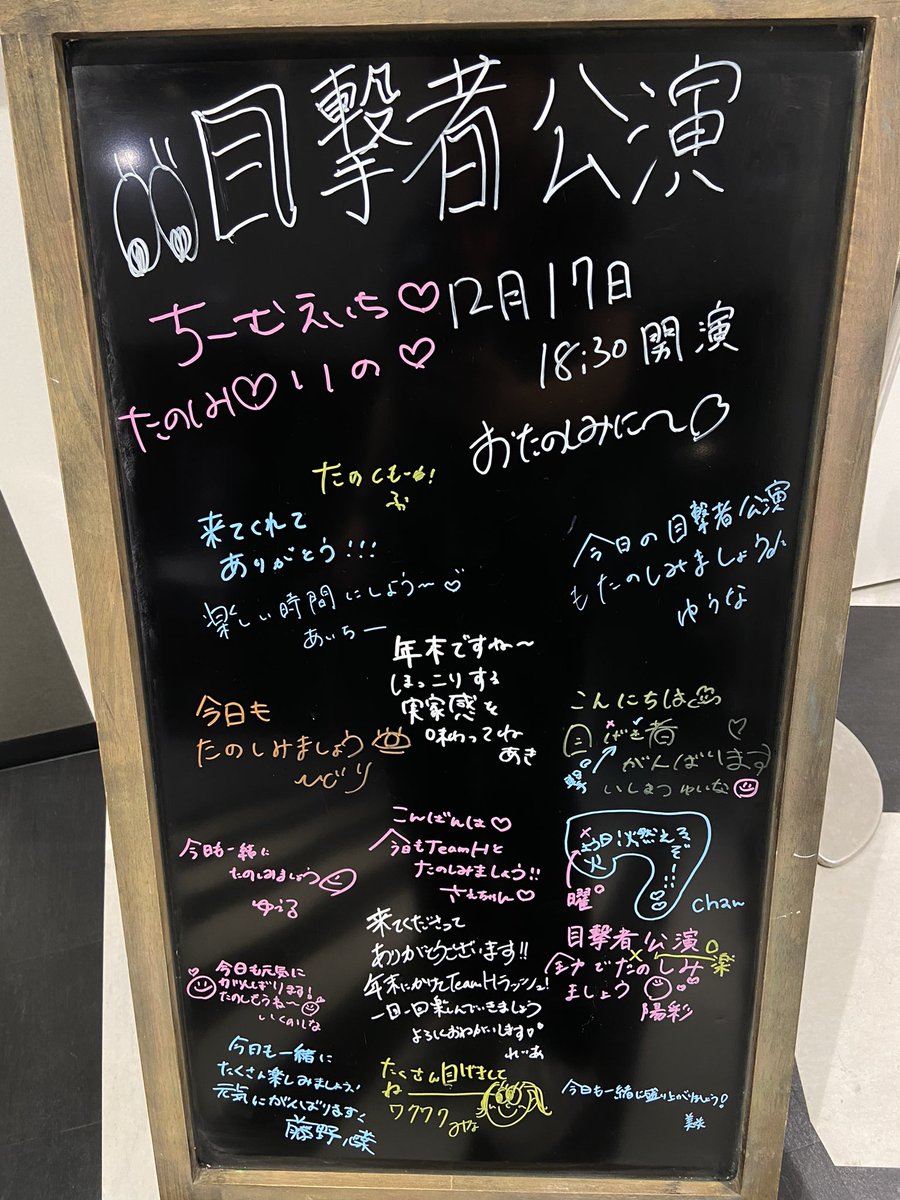 目撃者公演
ちーむえいち♡
12月17日
18:30開演
たのしみ♡りの♡
おたのしみに〜♡
たのしもーね!
ふ
来てくれて
ありがとう!!!
楽しい時間にしよう〜♡
あいちー
今日の目撃者公演
もたのしみましょうに
ゆうな
年末ですね〜
ほっこりする
実家感を
味わってね
あき
今日も
たのしみましょう
ひどり
こんにちは
目げき者
撃
がんばります
いしまつゆいな
こんばんは♡
今日もTeamHと
たのしみましょう!!
さえちゃん♡
今日も一緒に
たのしみましょう
ゆうる
火
燃えるぞー!!
曜
chan
来てくださって
ありがとうございます!!
年末にかけてTeamHラッシュ!
一日一回楽しんでいきましょう
よろしくおねがいします
れどあ
目撃者公演
全力でたのしみ
楽
ましょう
陽彩
今日も元気に
がんばります!
たのしもうね〜
いくのりな
今日も一緒に
たくさん楽しみましょう!
元気にがんばります!
藤野心葉
たくさん目げきして
ね
ワクワク
みな
今日も一緒に盛り上がりましょう!
美咲